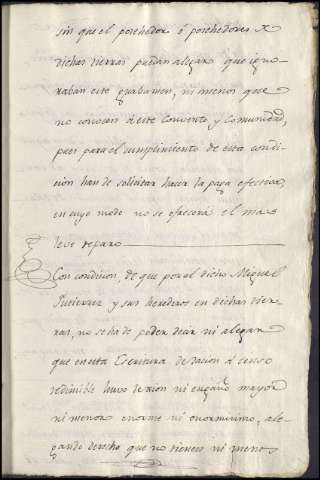 sin que el poschedor ó poschedores de
dichas tierras puedan alegar que igno-
raban este grabamen, ni menos que
no conocen á este Convento y Comunidad,
pues para el cumplimiento de esta condi-
cion han de solicitar hacer la paga efectiva,
en cuyo modo no se ofrecerá el mas
leve reparo
Con condicion, de que por el dicho Miguel
Gutierrez y sus herederos en dichas tier-
ras, no se ha de poder decir ni alegar
que en esta Escritura de dacion á censo
redimible huvo lesion ni engaño mayor
ni menor enorme ni enormisimo, ale-
gando derecho que no tienen ni menos